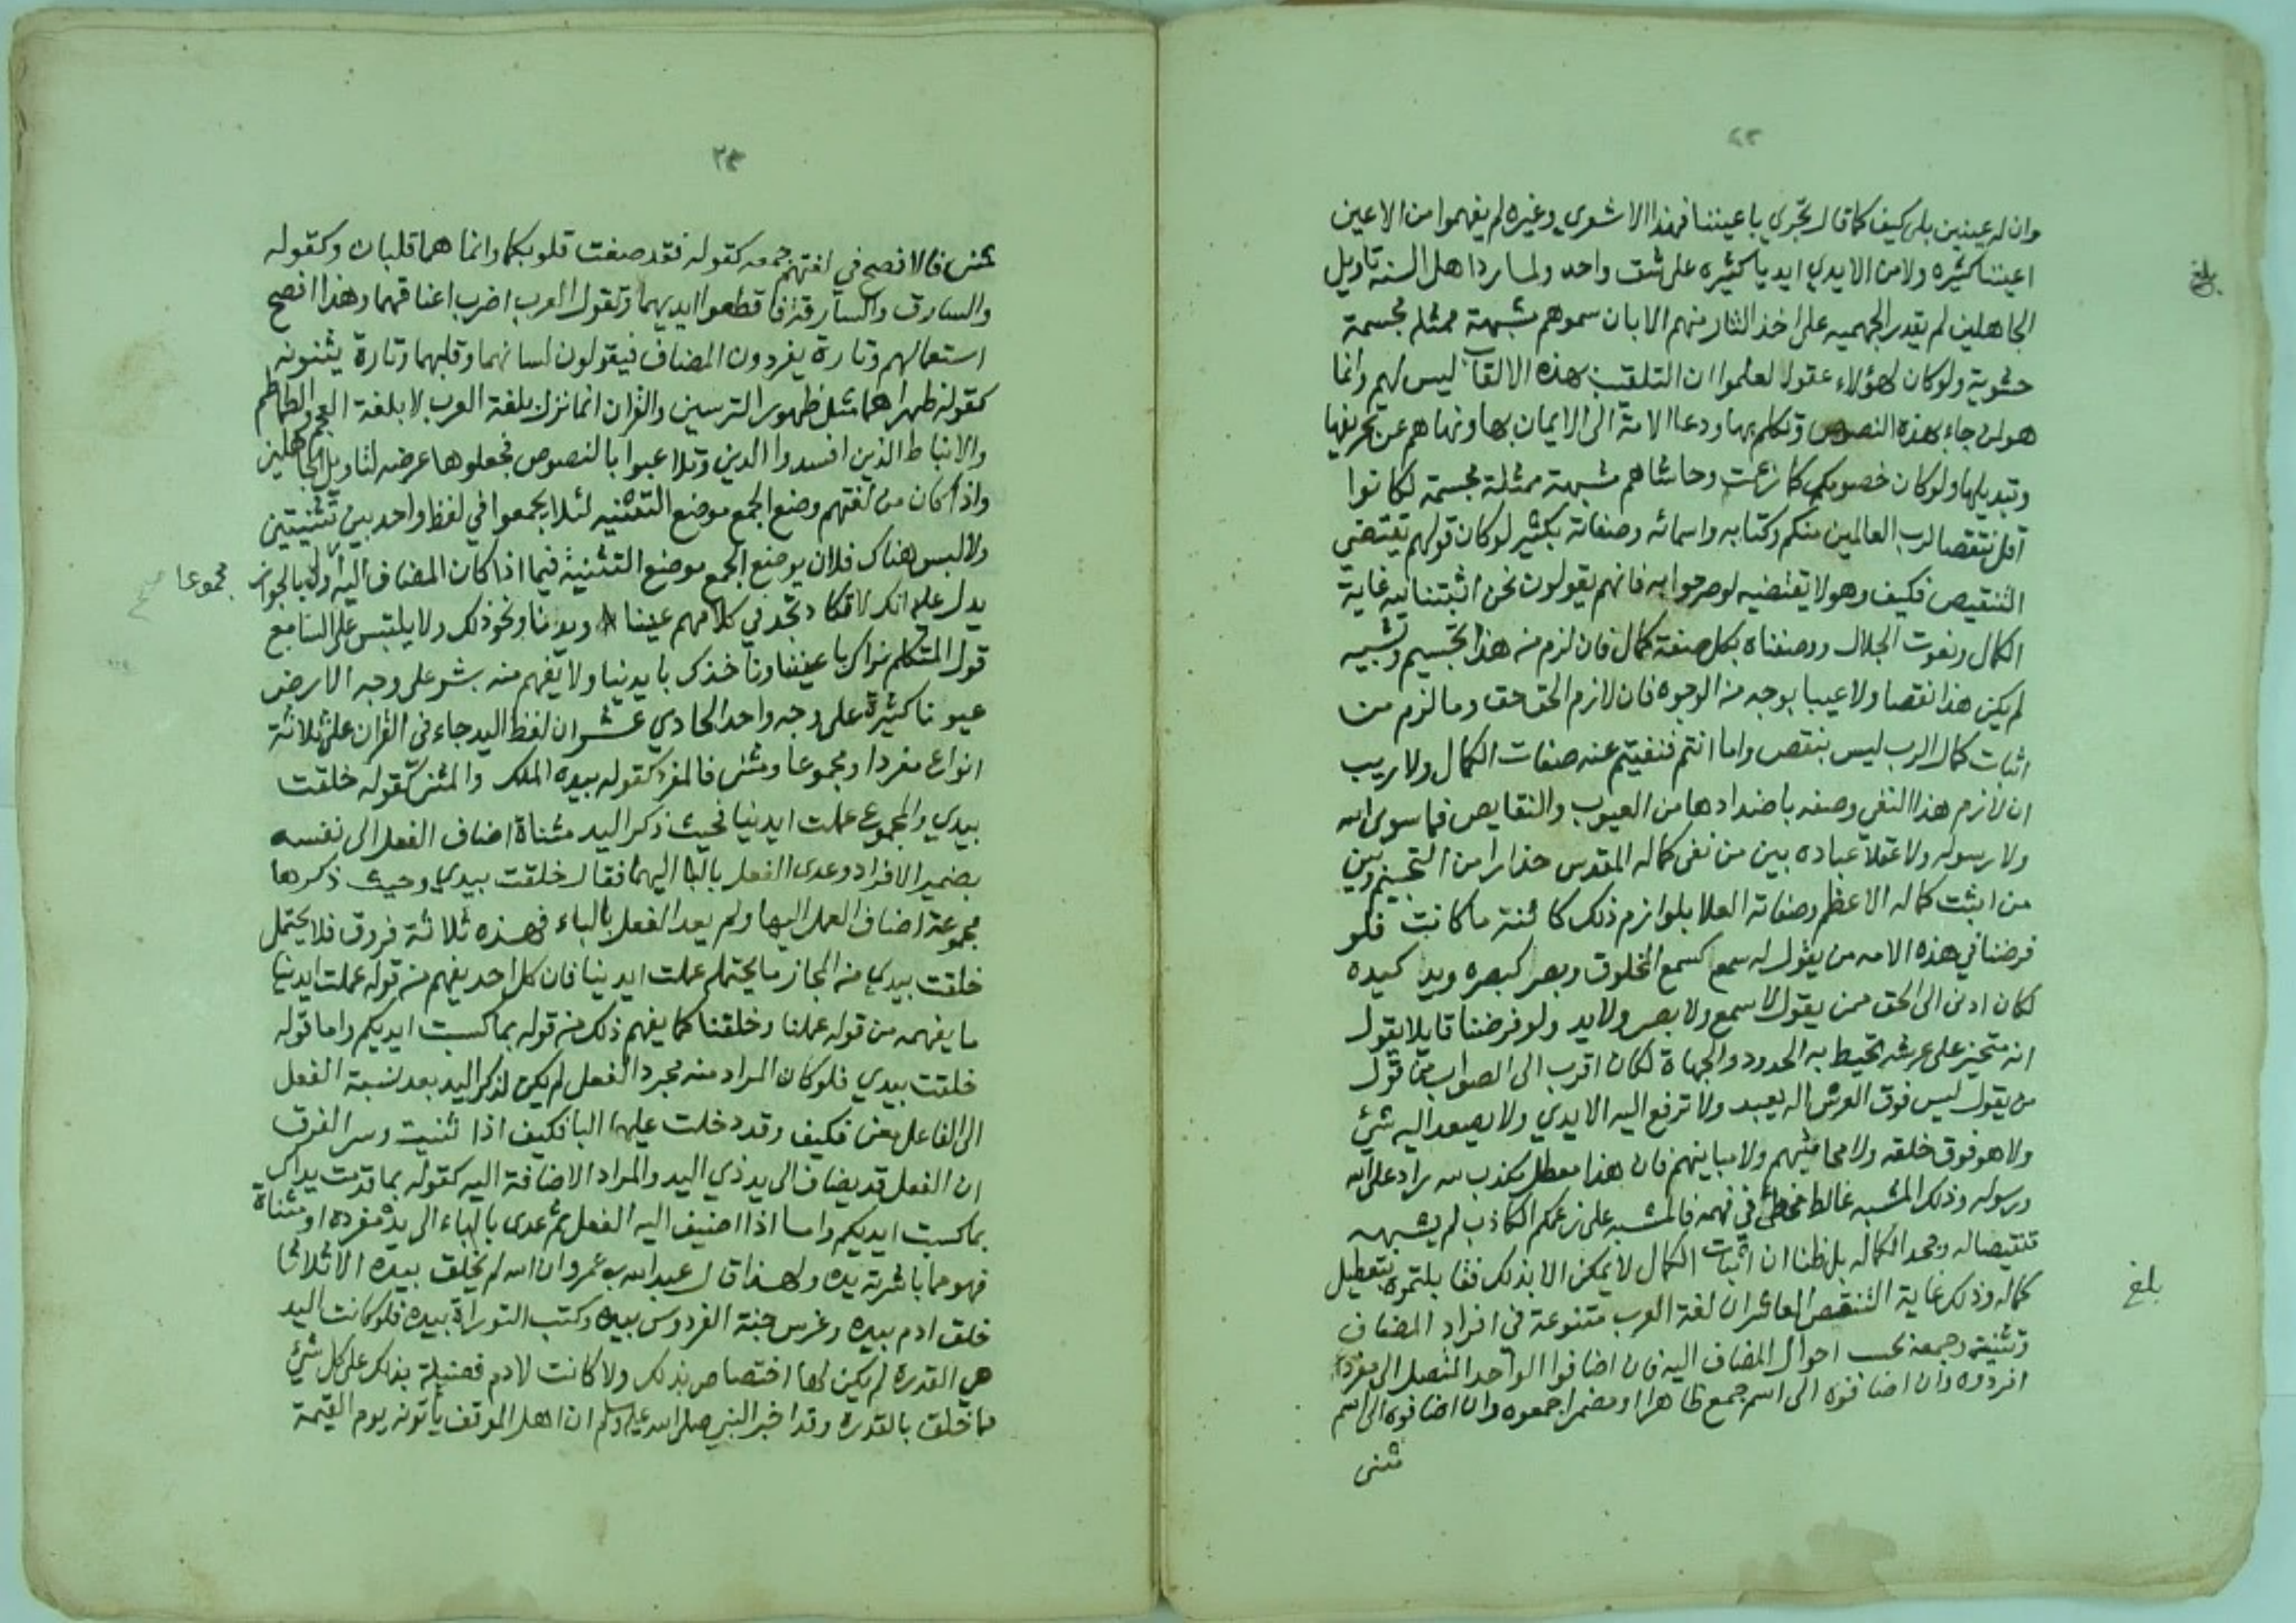 وان له عينين بلا كيف كما قال تجري باعيننا فهذا الاشعري وغيره لم يفهموا من الاعين
اعيننا كثيره ولا من الايدي ايديا كثيره على شق واحد ولما رد اهل السنه تاويل
الجاهلين لم يقدر الجهميه على اخذ الثار منهم الا بان سموهم مشبهة ممثلة مجسمة
حشوية ولو كان لهؤلاء عقول لعلموا ان التلقيب بهذه الالقاب ليس لهم وانما
هو لمن جاء بهذه النصوص وتكلم بها ودعا الامة الى الايمان بها ونهاهم عن تحريفها
وتبديلها ولو كان خصومكم كما زعمتم وحاشاهم مشبهة ممثلة مجسمة لكانوا
اقل تنقصا لرب العالمين منكم وكتابه واسمائه وصفاته بكثير لو كان قولهم يقتضي
التنقيص فكيف وهو لا يقتضيه لو صرحوا به فانهم يقولون نحن اثبتنا لله غاية
الكمال ونعوت الجلال ووصفناه بكل صفة كمال فان لزم من هذا تجسيم وتشبيه
لم يكن هذا نقصا ولا عيبا بوجه من الوجوه فان لازم الحق حق وما لزم من
اثبات كمال الرب ليس بنقص واما انتم فنفيتم عنه صفات الكمال ولا ريب
ان لازم هذا النفي وصفه باضدادها من العيوب والنقايص فما سوى الله
ولا رسوله ولا عقلا عباده بين من نفى كماله المقدس حذارا من التجسيم وبين
من اثبت كماله الاعظم وصفاته العلا بلوازم ذلك كائنة ما كانت فلو
فرضنا في هذه الامه من يقول له سمع كسمع المخلوق وبصر كبصره ويد كيده
لكان ادنى الى الحق ممن يقول لا سمع ولا بصر ولا يد ولو فرضنا قايلا يقول
انه متحيز على عرشه تحيط به الحدود والجهاة لكان اقرب الى الصواب من قول
من يقول ليس فوق العرش اله يعبد ولا ترفع اليه الايدي ولا يصعد اليه شئ
ولا هو فوق خلقه ولا محايثهم ولا مباينهم فان هذا معطل مكذب لله راد على الله
ورسوله وذلك المشبه غالط مخطئ في فهمه فالمشبه على زعمكم الكاذب لم يشبهه
تنقيصا له وجحد الكماله بل ظنا ان اثبات الكمال لا يمكن الا بذلك فقابلتموه بتعطيل
كماله وذلك غاية التنقيص العاشر ان لغة العرب متنوعة في افراد المضاف
وتثنيته وجمعه بحسب احوال المضاف اليه فان اضافوا الواحد المتصل الى مفرد
افردوه وان اضافوه الى اسم جمع ظاهرا او مضمرا جمعوه وان اضافوه الى اسم
مثنى
بلغ
بلغ
٢٤
مثنى فالافصح في لغتهم جمعه كقوله فقد صغت قلوبكما وانما هما قلبان وكقوله
والسارق والسارقة فاقطعوا ايديهما وتقول العرب اضرب اعناقهما وهذا افصح
استعمالهم وتارة يفردون المضاف فيقولون لسانهما وقلبهما وتارة يثنونه
كقوله ظهراهما مثل ظهور الترسين والقران انما نزل بلغة العرب لا بلغة العجم والطماطم
والانباط الذين افسدوا الدين وتلاعبوا بالنصوص فجعلوها عرضه لتاويل الجاهلين
واذا كان من لغتهم وضع الجمع موضع التثنيه لئلا يجمعوا في لفظ واحد بين تثنيتين
ولا لبس هناك فلان يوضع الجمع موضع التثنية فيما اذا كان المضاف اليه اولى بالجواز
مجموعا صح
يدل عليه انك لا تكاد تجد في كلامهم عينا ويدنا ونحو ذلك ولا يلتبس على السامع
قول المتكلم نراك باعيننا وناخذك بايدينا ولا يفهم منه بشر على وجه الارض
عيونا كثيرة على وجه واحد الحادي عشر ان لفظ اليد جاء في القران على ثلاثة
انواع مفردا ومجموعا ومثنى فالمفرد كقوله بيده الملك والمثنى كقوله خلقت
بيدي والمجموع عملت ايدينا فحيث ذكر اليد مثناة اضاف الفعل الى نفسه
بضمير الافراد وعدى الفعل بالبا اليهما فقال خلقت بيدي وحيث ذكرها
مجموعة اضاف العمل اليها ولم يعد الفعل بالباء فهذه ثلاثة فروق فلا يحتمل
خلقت بيدي من المجاز ما يحتمله عملت ايدينا فان كل احد يفهم من قوله عملت ايدينا
ما يفهمه من قوله عملنا وخلقنا كما يفهم ذلك من قوله بما كسبت ايديكم واما قوله
خلقت بيدي فلو كان المراد منه مجرد الفعل لم يكن لذكر اليد بعد نسبة الفعل
الى الفاعل معنى فكيف وقد دخلت عليها البا فكيف اذا ثنيت وسر الفرق
ان الفعل قد يضاف الى يد ذي اليد والمراد الاضافة اليه كقوله بما قدمت يداك
بما كسبت ايديكم واما اذا اضيف اليه الفعل ثم عدى بالباء الى يده مفرده او مثناة
فهو مما باشرته يده ولهذا قال عبد الله بن عمرو ان الله لم يخلق بيده الا ثلاثا
خلق ادم بيده وغرس جنة الفردوس بيده وكتب التوراة بيده فلو كانت اليد
هي القدره لم يكن لها اختصاص بذلك ولا كانت لادم فضيلة بذلك على كل شئ
مما خلق بالقدره وقد اخبر النبي صلى الله عليه وسلم ان اهل الموقف ياتونه يوم القيمة